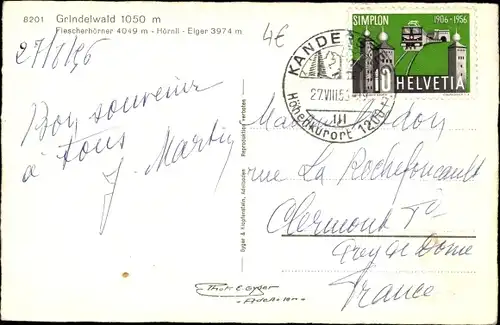 8201 Grindelwald 1050 m
Fiescherhörner 4049 m - Hörnli - Eiger 3974 m
27/8/56
4€
Bon souvenir
à tous
J. Martin
SIMPLON 1906-1956
10
HELVETIA
KANDE
27.VIII.56
III
Höhenkurort 1200
rue La Rochefoucault
Clermont Fd
Puy de Dome
France
Gyger & Klopfenstein, Adelboden Reproduktion verboten
Phot. E. Gyger
- Adelboden -